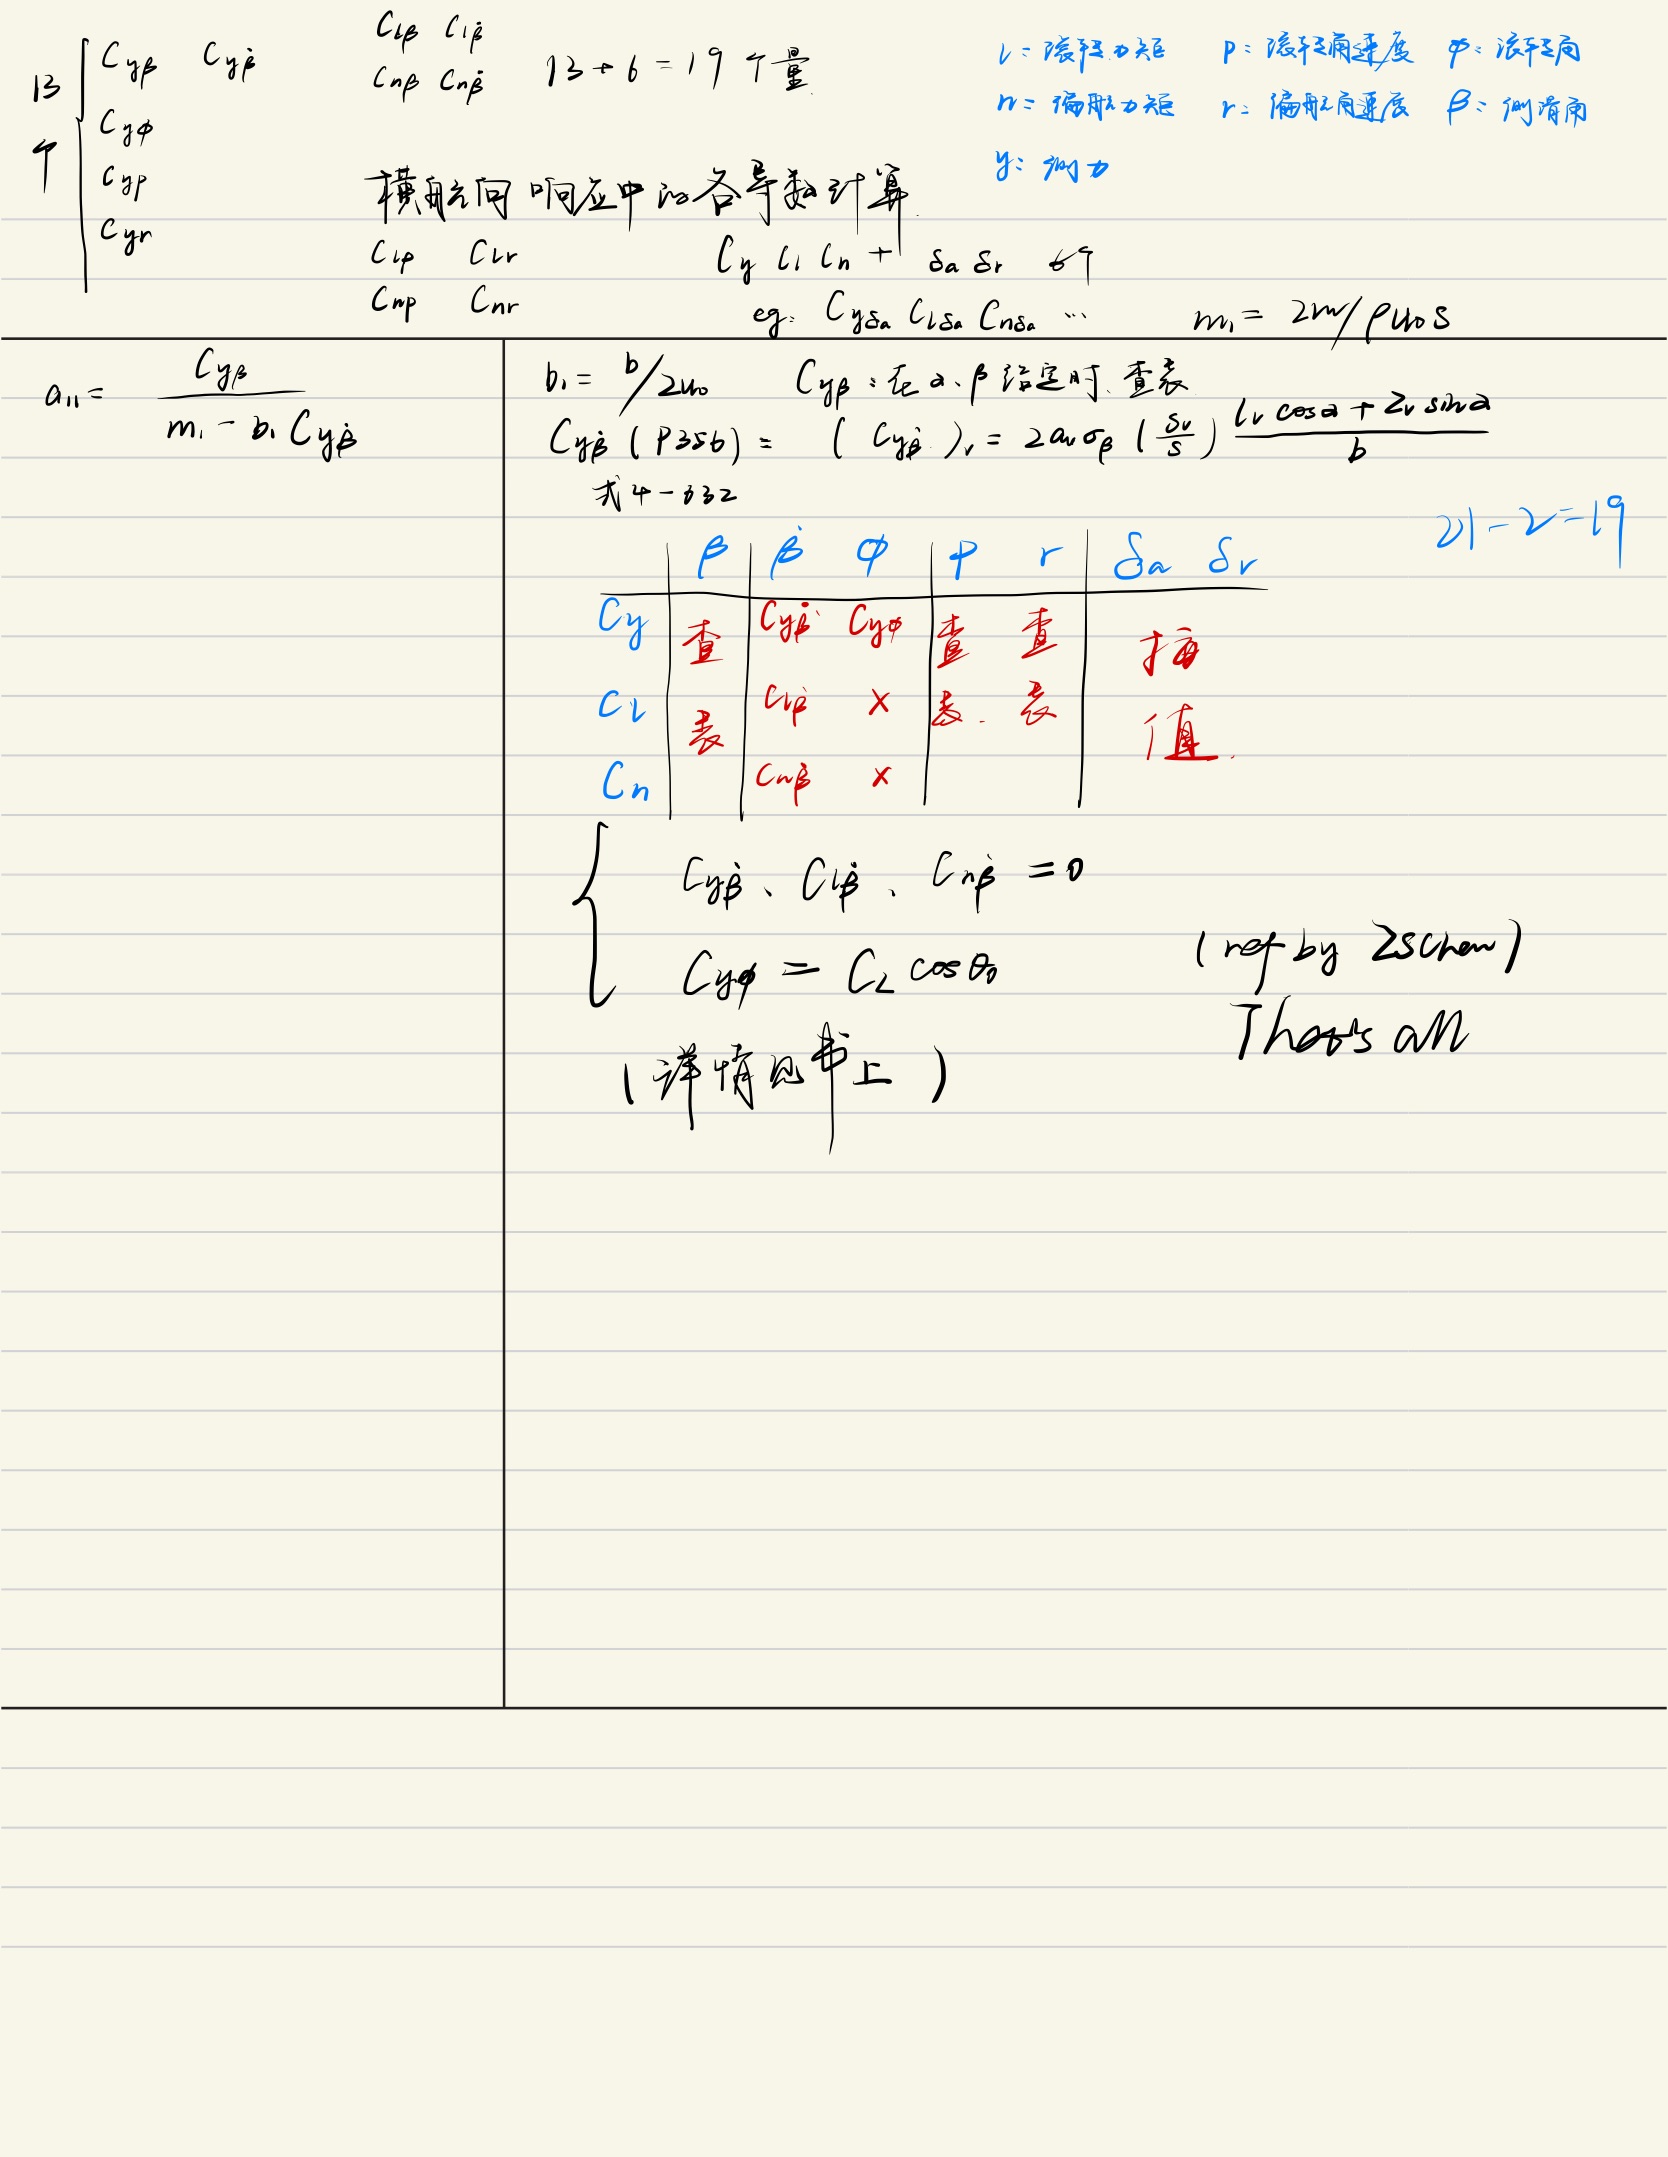 13个 { Cyβ Cyβ̇
Cyφ
Cyp
Cyr
Clβ Clβ̇
Cnβ Cnβ̇
13 + 6 = 19 个量
l: 滚转力矩 p: 滚转角速度 φ: 滚转角
n: 偏航力矩 r: 偏航角速度 β: 侧滑角
y: 侧力
横航向响应中的各导数计算
Clp Clr
Cnp Cnr
Cy Cl Cn + δa δr 6个
eg: Cyδa Clδa Cnδa ...
m₁ = 2m/ρu₀S
a₁₁ = Cyβ / (m₁ - b₁Cyβ̇)
b₁ = b/2u₀ Cyβ: 在α、β给定时、查表
Cyβ̇ (P356) = (Cyβ̇)v = 2avσβ (Sv/S) (lv cosα + Zv sinα)/b
21 - 2 = 19
β β̇ φ p r δa δr
Cy 查 Cyβ̇ Cyφ 查 查 插
Cl 表 Clβ̇ × 表 表 值
Cn Cnβ̇ ×
{ Cyβ̇、Clβ̇、Cnβ̇ = 0
Cyφ = CL cosθ₀
(ref by ZSChen)
That's all
(详情见书上)